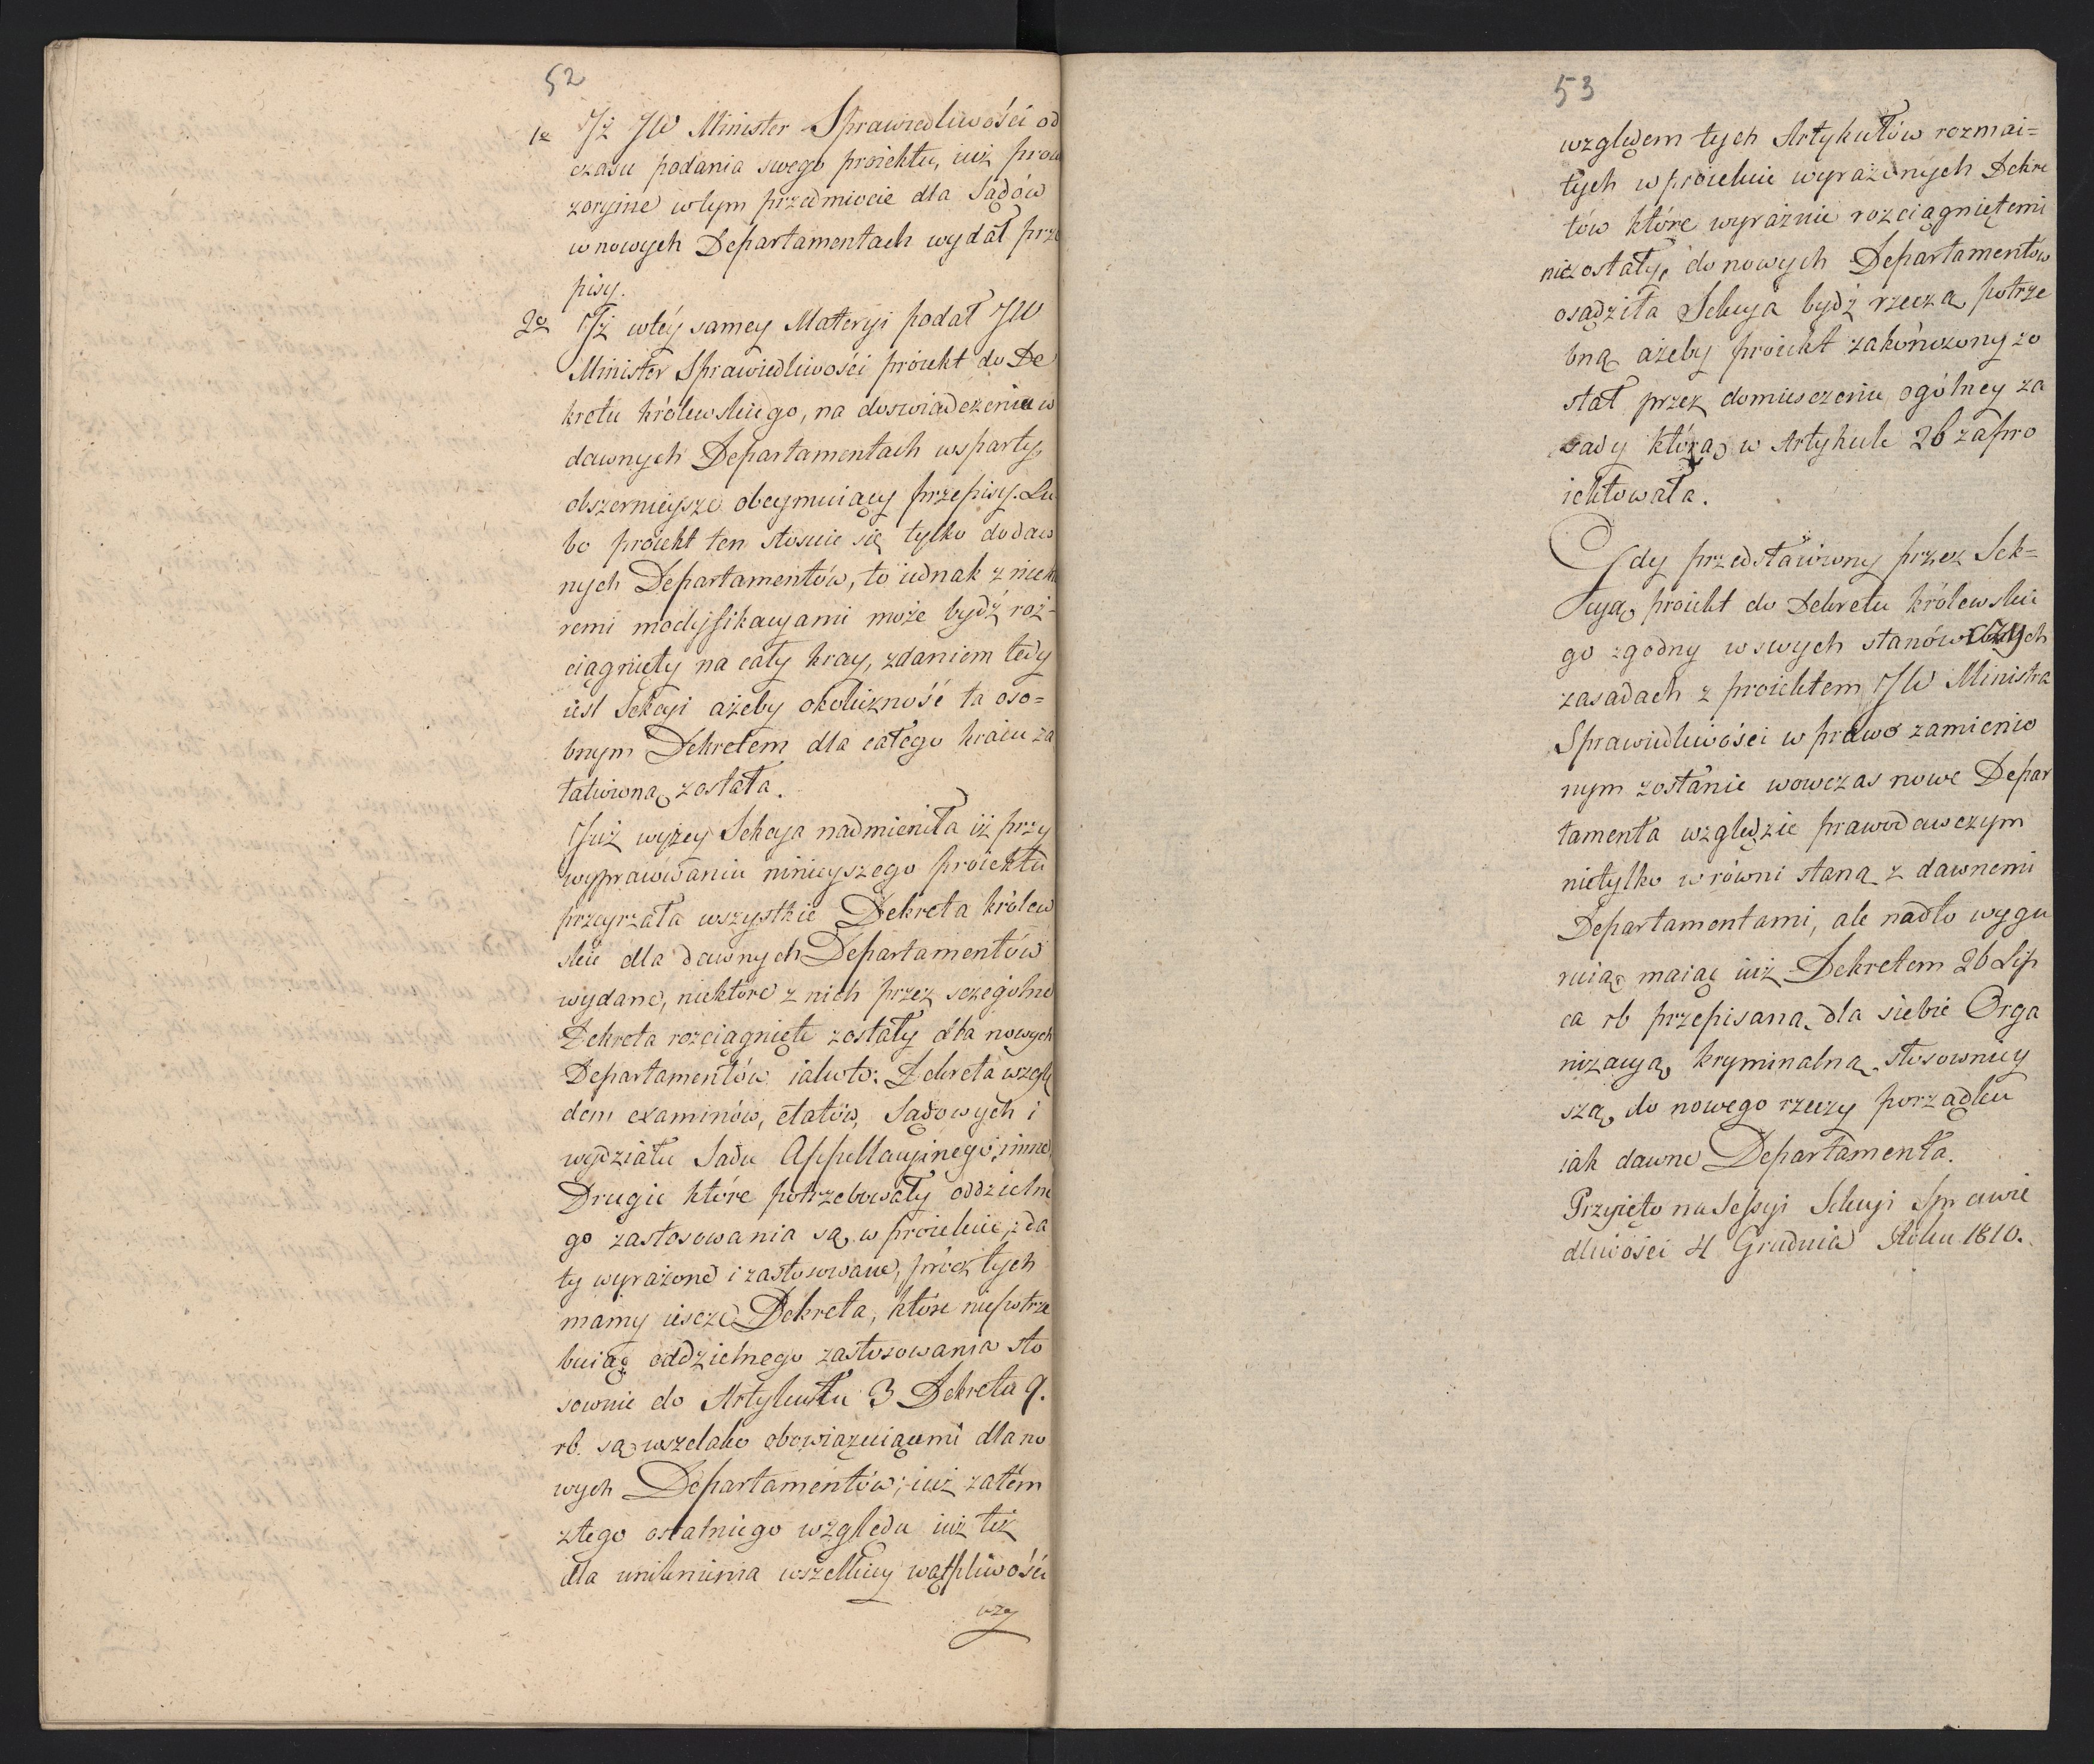 52
1º Iż JW Minister Sprawiedliwości od
czasu podania swego proiektu, iuż prow
zoryine wtym przedmiocie dla Sądów
w nowych Departamentach wydał prze
pisy.
2º Iż wtéy samey Materyi podał JW
Minister Sprawiedliwości proiekt do De
kretu królewskiego, na doswiadczeniu w
dawnych Departamentach wsparty,
obszernieysze obeymuiący przepisy. Lu
bo proiekt ten stosuie się tylko do daw
nych Departamentów, to iednak z niektó
remi modyfikacyami może bydź roz-
ciągnięty na cały kray, zdaniem tedy
iest Sekcyi ażeby okoliczność ta oso=
bnym Dekretem dla całego kraiu za
łatwioną została.
Już wyżey Sekcya nadmieniła iż przy
wyprawowaniu ninieyszego proiektu
przeyrzała wszystkie Dekreta królew
skie dla dawnych Departamentów
wydane, niektóre z nich przez sczególne
Dekreta rozciągnięte zostały dla nowych
Departamentów iakoto: Dekreta wzglę
dem examinów, etatów, Sądowych i
wydziału Sądu Appellacyinego, inne
Drugie które potrzebowały oddzielne
go zastosowania są w proiekcie z da
ty wyrażone i zastosowane, prócz tych
mamy iescze Dekreta, które niepotrze
buiąc oddzielnego zastosowania sto
sownie do Artykułu 3 Dekretu 9.
rb. są wszelako obowiązuiącemi dla no
wych Departamentów; iuż zatém
ztego ostatniego względu iuż też
dla uniknienia wszelkiey wątpliwości
wzg
53
względem tych Artykułów rozmai=
tych w proiekcie wyrażonych Dekre
tów które wyraźnie rozciągniętemi
niezostały, do nowych Departamentów
osądziła Sekcya bydź rzeczą potrze
bną ażeby proiekt zakończony zo
stał przez domiesczenie ogólney za
sady którą w Artykule 26 zapro
iektowała.
Gdy przedstawiony przez Sek=
cyą proiekt do Dekretu królewskie
go zgodny w swych stanowczych
zasadach z proiektem JW Ministra
Sprawiedliwości w prawo zamienio
nym zostanie wowczas nowe Depar
tamenta względzie prawodawczym
nietylko w równi staną z dawnemi
Departamentami, ale nadto wygu
ruią maiąc iuż Dekretem 26 Lip
ca rb przepisaną dla siebie Orga
nizacyą kryminalną stosowniey
szą do nowego rzeczy porządku
iak dawne Departamenta.
Przyięto na Sessyi Sekcyi Sprawie
dliwości 4 Grudnia Roku 1810.